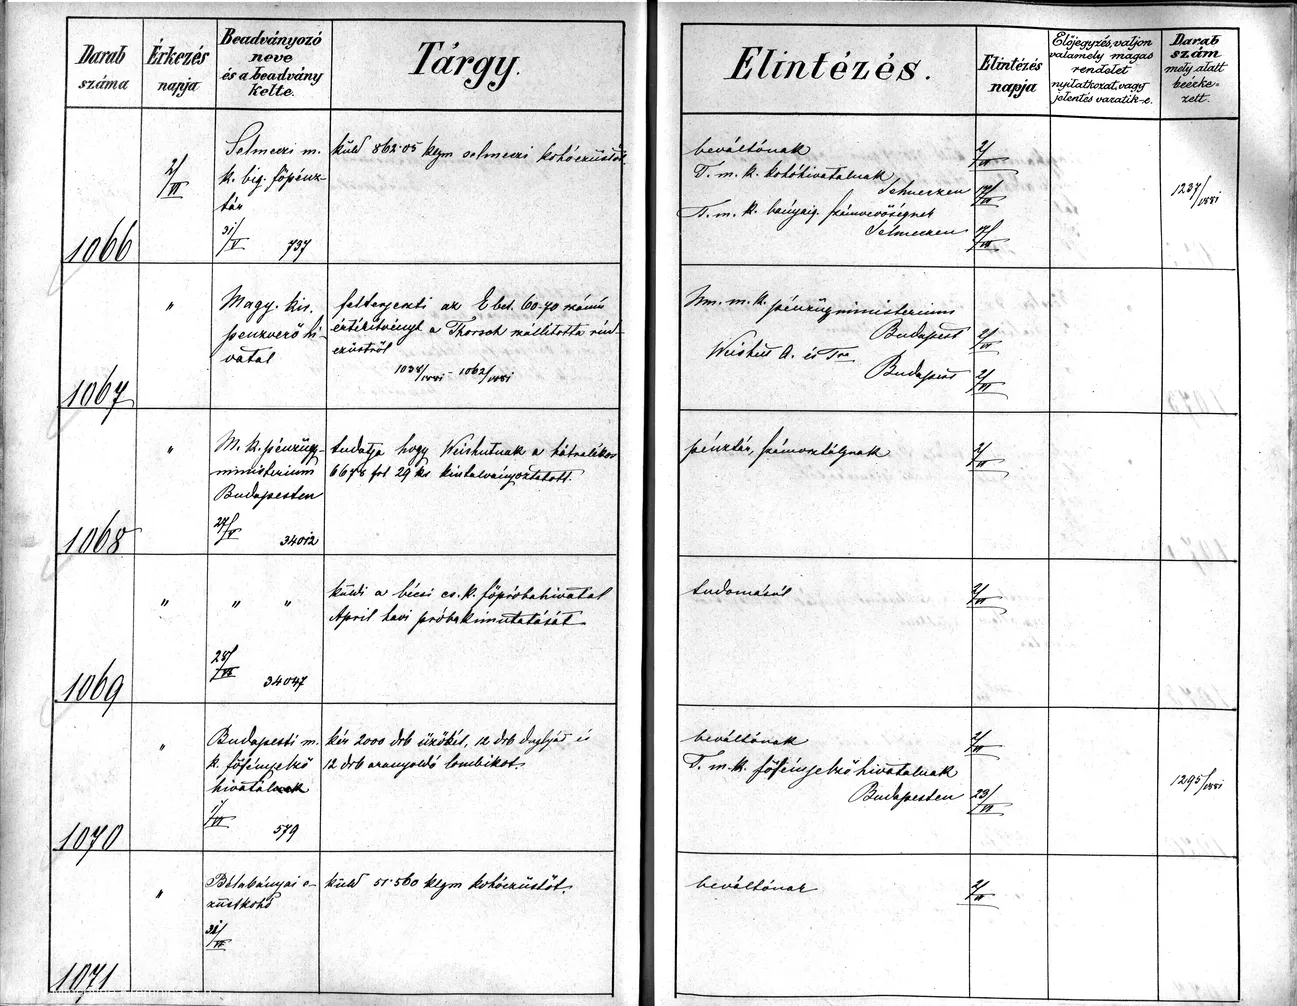 Darab száma
Érkezés napja
Beadványozó neve és a beadvány kelte.
Tárgy.
Elintézés.
Elintézés napja
Előjegyzés, valjon valamely magas rendelet nyilatkozat, vagy jelentés váratik-e.
Darab szám mely alatt beérkezett.
1066
2/VI
Selmeczi m.
k. bg. főpénz-
tár
31/V 737
küld 862·05 klgm selmeczi kohóezüstöt
beváltónak
2/VI
T. m. k. kohóhivatalnak
Selmeczen
17/VI
T. m. k. bányaig. számvevőségnek
Selmeczen
17/VI
1237/1881
1067
"
Magy. kir.
pénzverő hi-
vatal
felterjeszti az E bet. 60-70 számú
értésítvényt a Thorsch szállította rúd-
ezüstről
1038/1881 - 1062/1881
Nm. m. k. pénzügministerium
Budapest
2/VI
Weishut A. és Tsa
Budapest
2/VI
1068
"
M. k. pénzügy-
ministerium
Budapesten
27/V 34012
tudatja hogy Weishutnak a hátralékos
6678 frt 29 kr kiutalványoztatott.
pénztár, számosztálynak
2/VI
1069
" " "
28/VI
34047
küldi a bécsi cs. k. főpróbahivatal
April havi próbakimutatását
tudomásúl
2/VI
1070
"
Budapesti m.
k. főfémjelző
hivatalnak
1/VI
579
kér 2000 drb űzőkét, 12 drb dughját és
12 drb aranyoldó lombikot.
beváltónak
2/VI
T. m. k. főfémjelző hivatalnak
Budapesten
23/VI
1295/1881
1071
"
Bélabányai e-
züstkohó
31/VI
küld 51·560 klgm kohóezüstöt.
beváltónak
2/VI